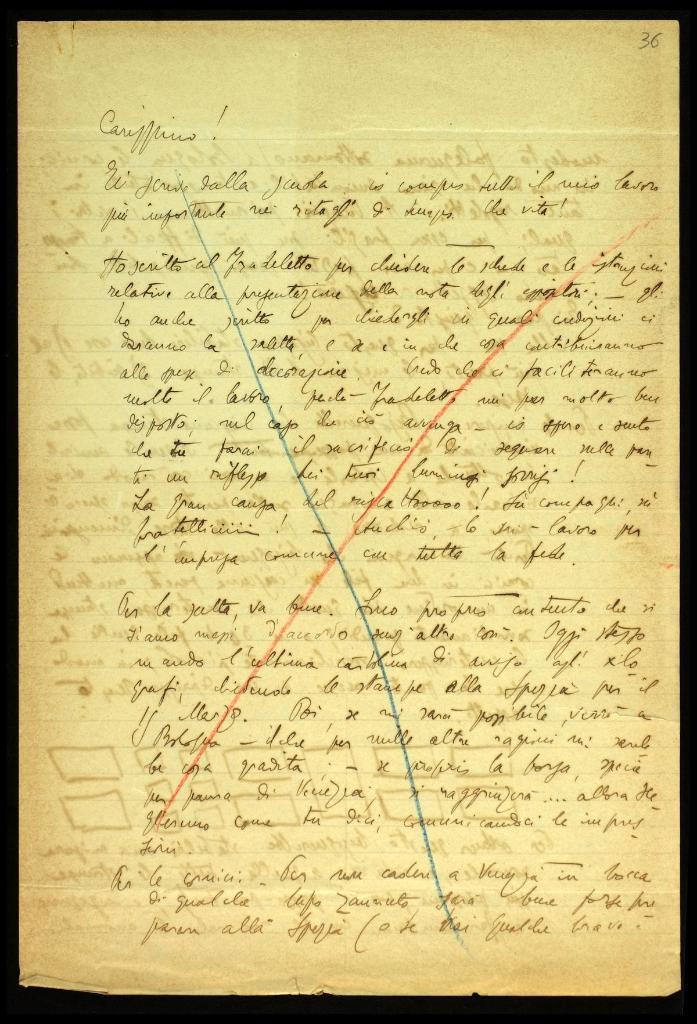 36
Carissimo!
Ti scrivo dalla scuola io compio tutto il mio lavoro
più importante nei ritagli di tempo. Che vita!
Ho scritto al Fradeletto per chiedere le schede e le istruzioni
relative alla presentazione della nota degli espositori; – gli
ho anche scritto per chiedergli in quali condizioni ci
daranno la saletta, e se e in che cosa contribuiranno
alle spese di decorazione. Credo che ci faciliteranno
molto il lavoro, perchè Fradeletto mi par molto ben
disposto; nel caso che ciò avvenga – io spero e sento
che tu farai il sacrificio di segnare sulle pare
ti un riflesso dei tuoi luminosi sorrisi!
La gran causa del riscattooooo! Su compagni, su
fratelliiiiii! – Anch'io, lo sai – lavoro per
l'impresa comune con tutta la fede.
Per la scelta, va bene. Sono proprio contento che si
siamo messi d'accordo senz'altro così. Oggi stesso
mando l'ultima cartolina di avviso agli xilo
grafi, chiedendo le stampe alla Spezia per il
15 Marzo. Poi, se mi sarà possibile, verrò a
Bologna – il che per mille altre ragioni mi sareb
be cosa gradita: – se proprio la borsa, specie
per paura di Venezia, si raggrinzerà... allora sce
glieremo come tu dici, comunicandoci le impres
sioni.
Per le cornici. Per non cadere a Venezia in bocca
di qualche lupo zannuto sarà bene forse pre
parar alla Spezia (o se hai qualche bravo =